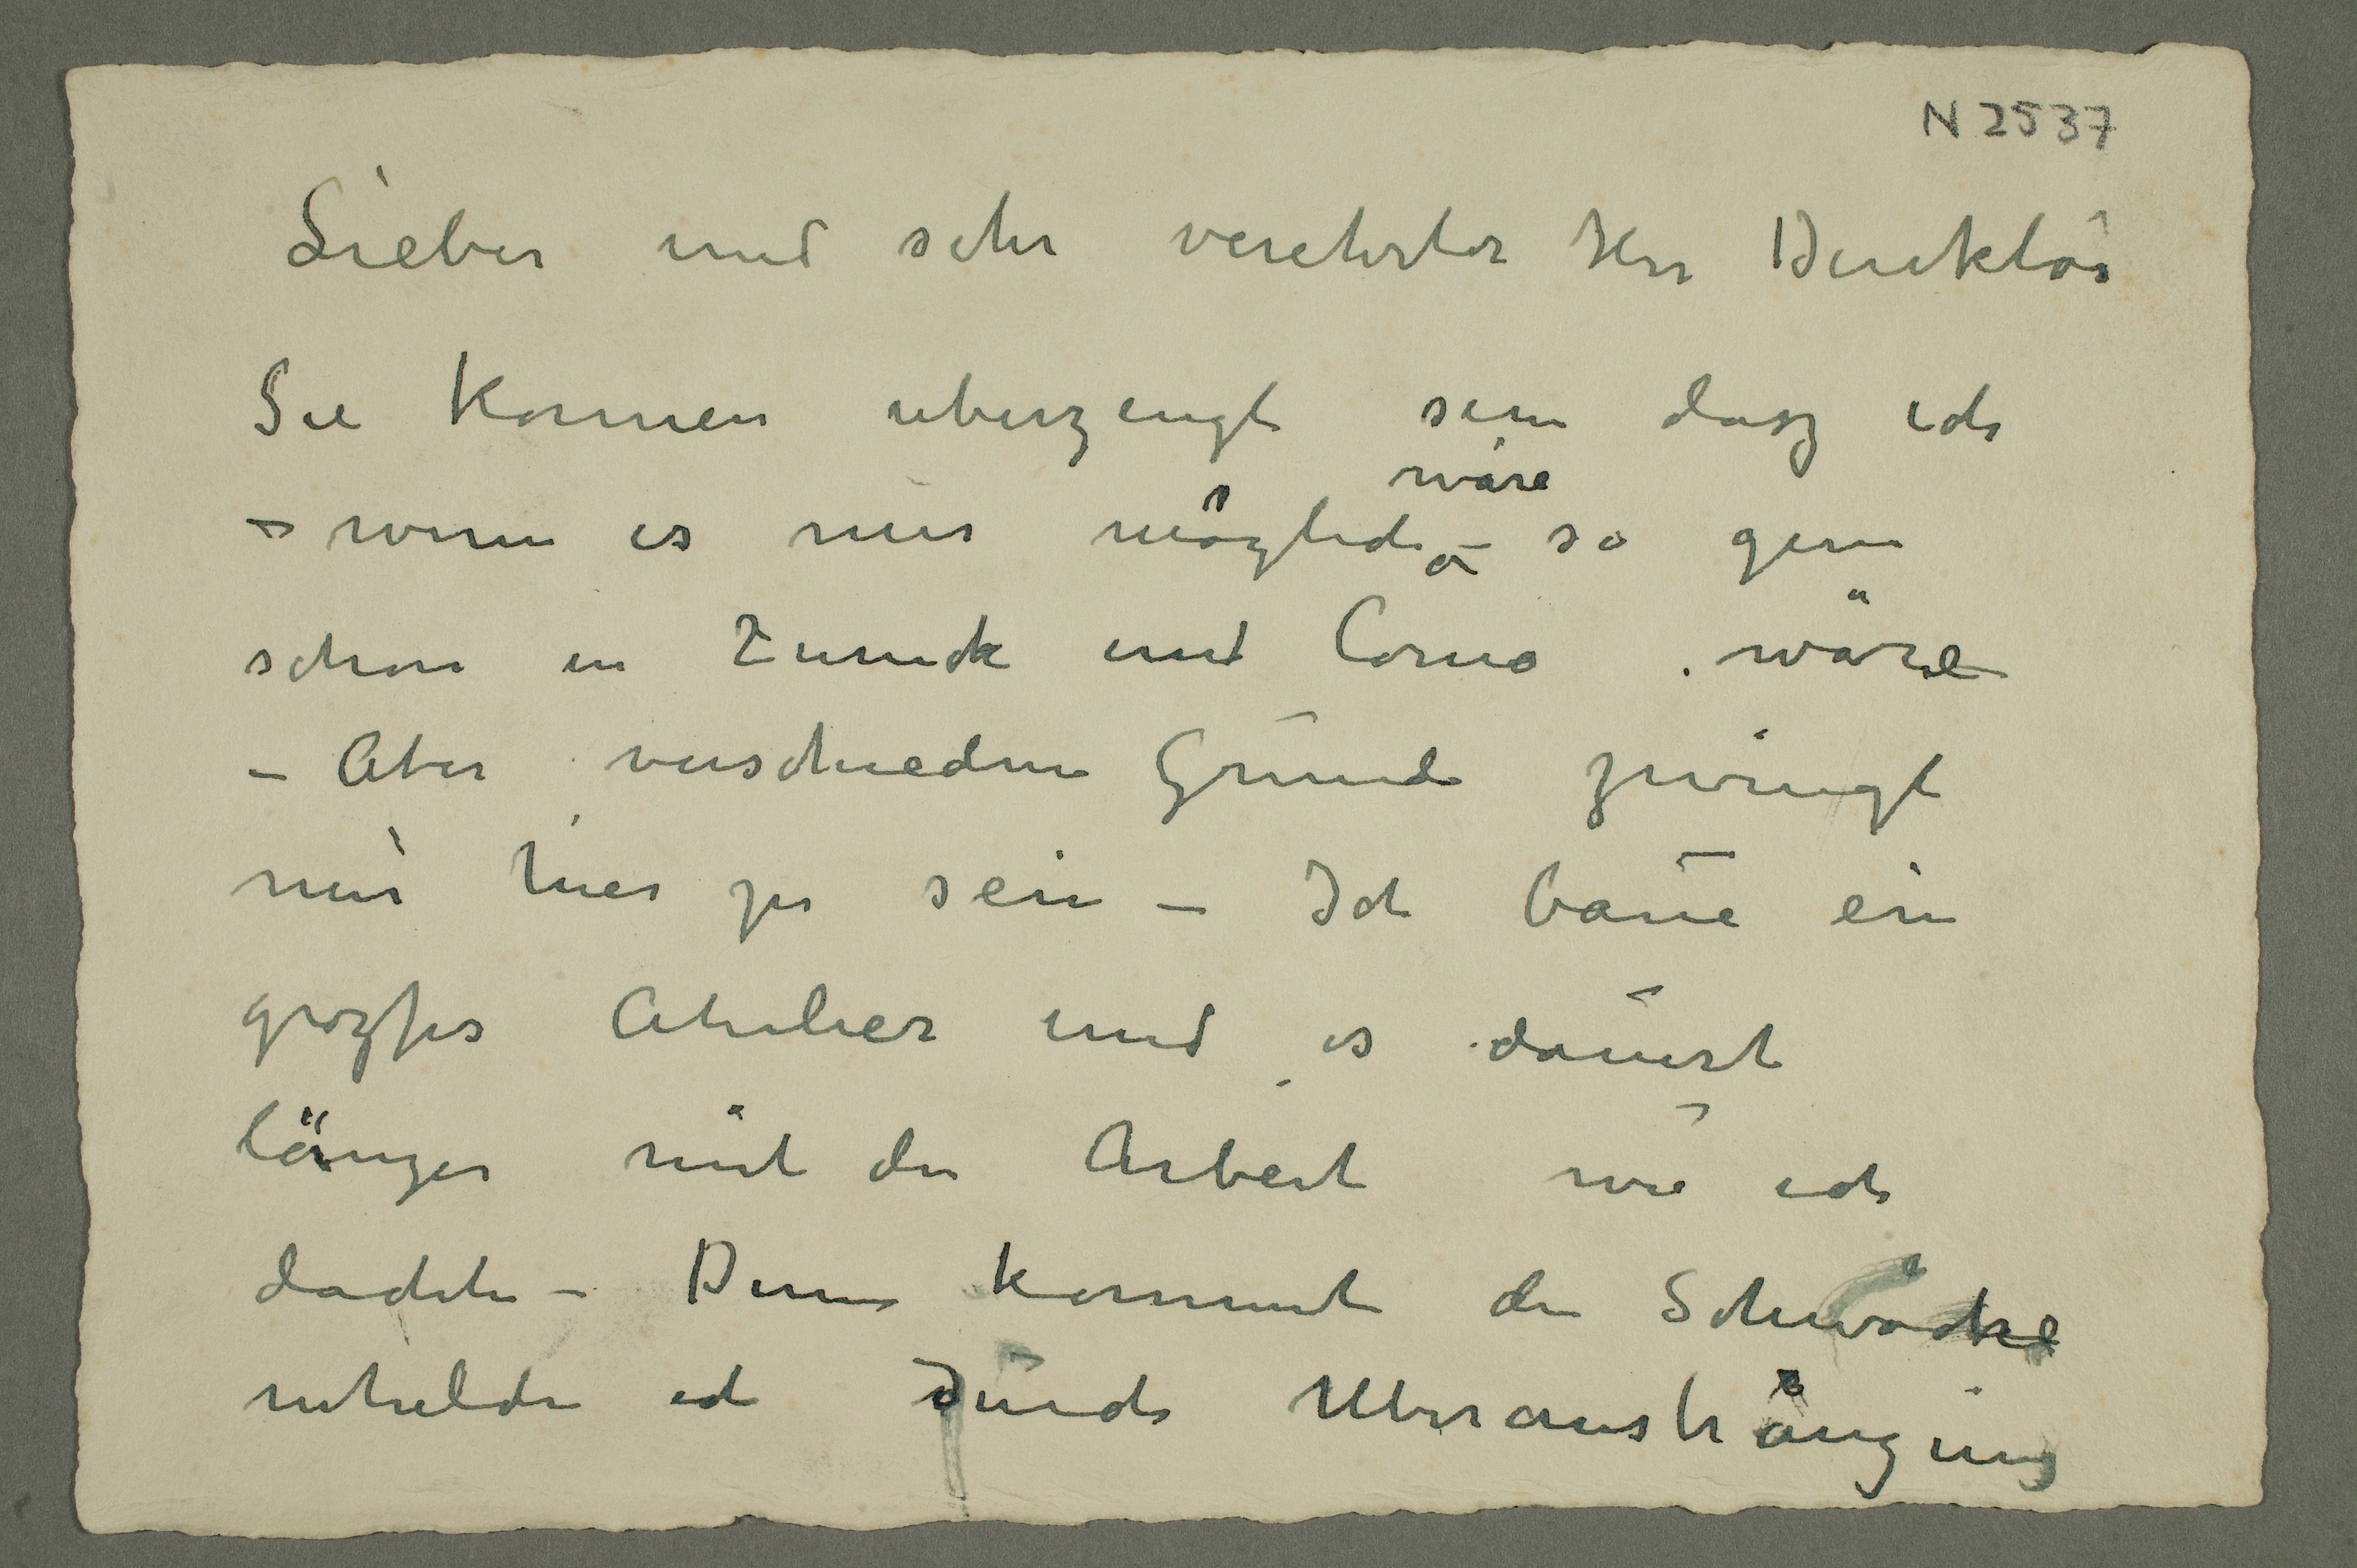 N 2537
Lieber und sehr verehrter Herr Direktor
Sie konnen uberzeugt sein dasz ich
wäre
– wenn es mir möglich – so gern
schon in Zurick und Corno wäre
– Aber verschiedene Grunde zwingt
mir hier zu sein – Ich baūe ein
groszses Atelier und es daūert
länger mit der Arbeit wie ich
dachte – Denn kommt die Schwäche
welche ich durch Uberansträngung